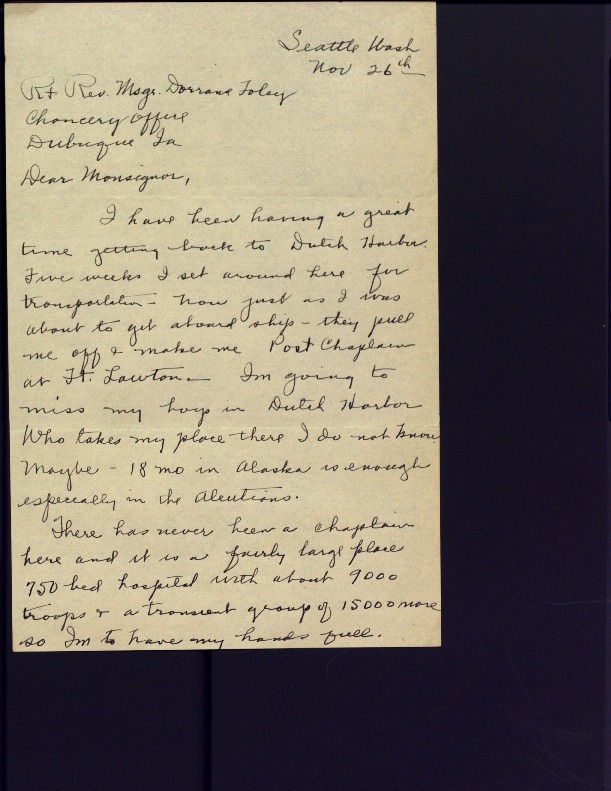 Seattle Wash
Nov 26th
Rt Rev. Msgr. Dorrance Foley
Chancery Office
Dubuque Ia
Dear Monsignor,
I have been having a great
time getting back to Dutch Harbor.
Five weeks I set around here for
transportation - Now just as I was
about to get aboard ship - they pull
me off & make me Post Chaplain
at Ft. Lawton. Im going to
miss my boys in Dutch Harbor
Who takes my place there I do not know
Maybe - 18 mo in Alaska is enough
especially in the Aleutians.
There has never been a chaplain
here and it is a fairly large place
750 bed hospital with about 9000
troops & a transient group of 15000 more
so Im to have my hands full.